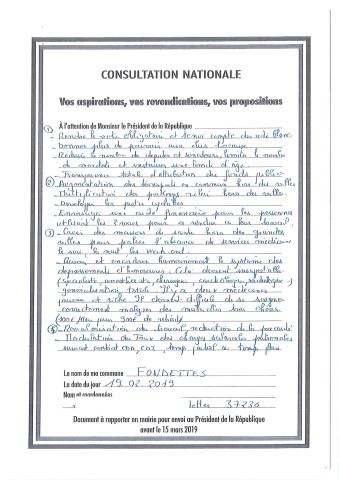 CONSULTATION NATIONALE
Vos aspirations, vos revendications, vos propositions
À l'attention de Monsieur le Président de la République
① - Rendre le vote obligatoire et tenir compte du vote blanc
- Donner plus de pouvoir aux élus locaux
- Réduire le nombre de députés et sénateurs, limiter le nombre
de mandats et instaurer une limite d'âge
- Transparence totale d'attribution des fonds publics
② - Augmentation des transports en commun hors des villes
- Multiplication des parkings relais hors des villes
- Développer les pistes cyclables
- Envisager une aide financière pour les personnes
utilisant les 2 roues pour se rendre à leur travail
③ - Créer des maisons de santé hors des grandes
villes pour pallier l'absence de services médicaux
le soir, la nuit, les week-end.
- Revoir et encadrer humainement le système des
dépassements d'honoraires. Cela devient insupportable
(spécialiste, anesthésiste, chirurgien, cardiologue, radiologue)
généralisation totale. Il y a deux médecines
pauvre et riche. Il devient difficile de se soigner
correctement malgré des mutuelles très chères.
④ - Revalorisation du travail, réduction de la précarité
- Modulation du Taux des charges salariales patronales
suivant contrat CDD, CDI, temps partiel ou temps plein
Le nom de ma commune FONDETTES
La date du jour 19.02.2019
Nom et coordonnées
37230
Document à rapporter en mairie pour envoi au Président de la République
avant le 15 mars 2019